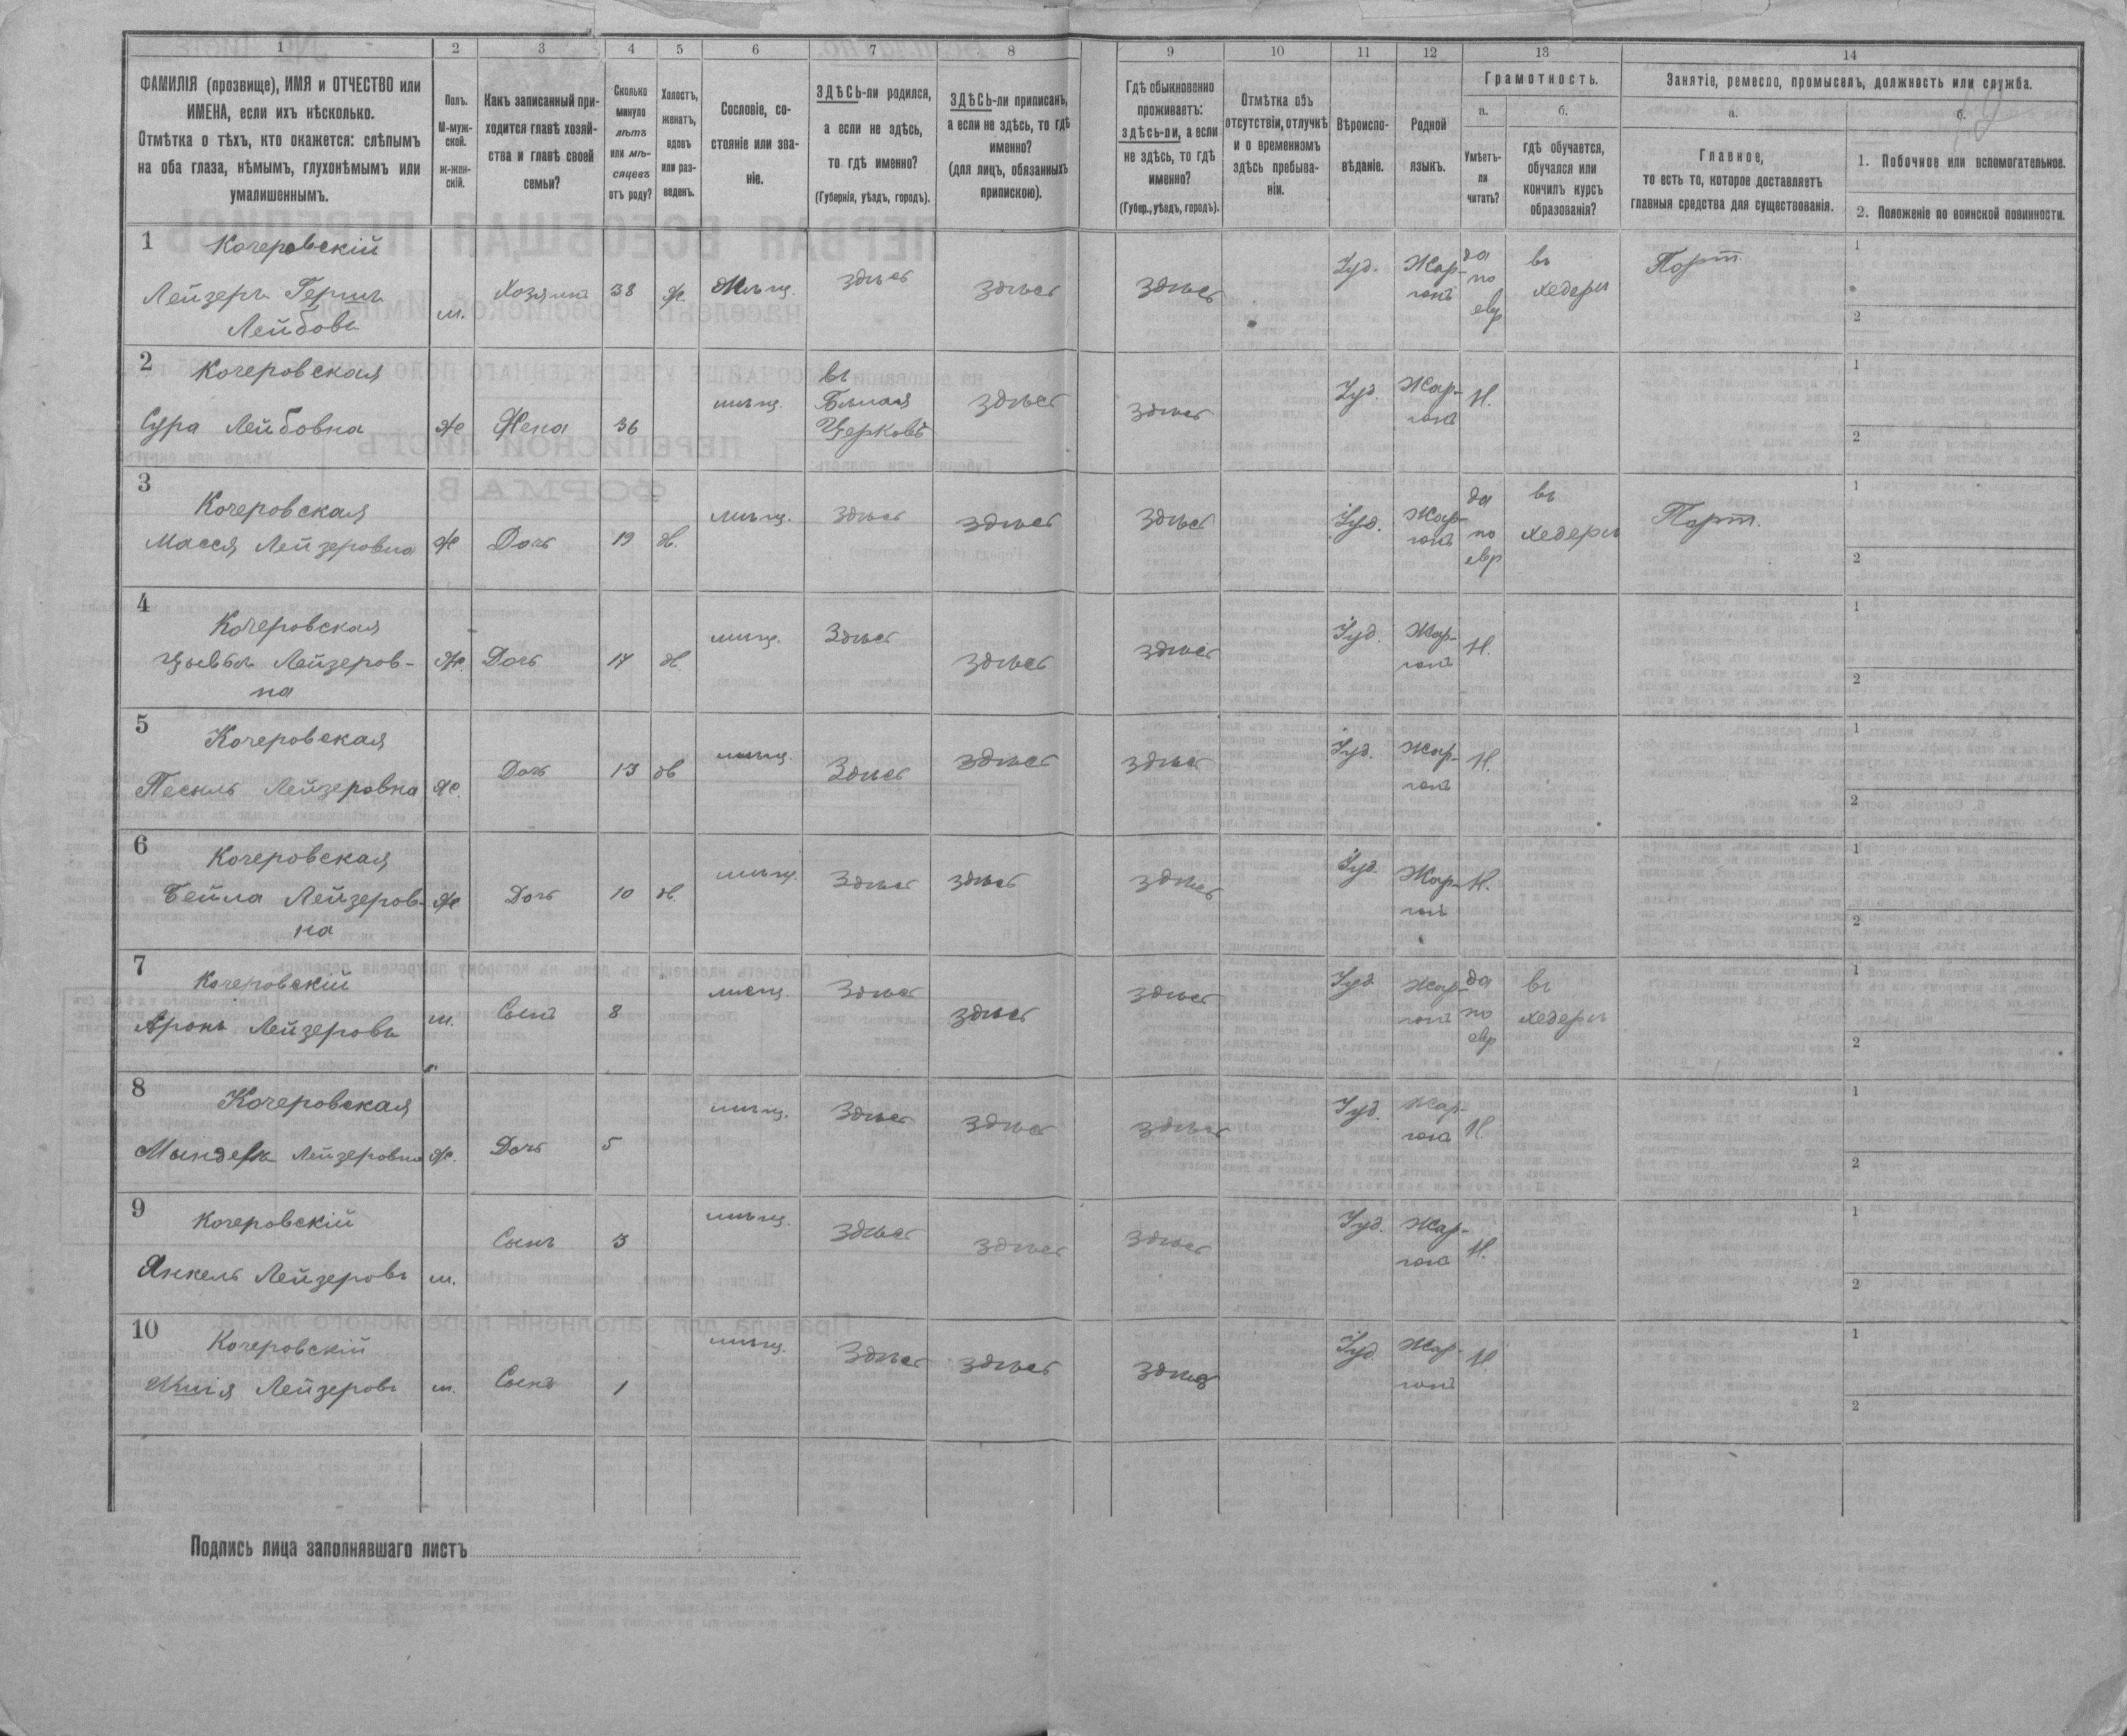 1 2 3 4 5 6 7 8 9 10 11 12 13 14
ФАМИЛІЯ (прозвище), ИМЯ и ОТЧЕСТВО или
ИМЕНА, если ихъ нѣсколько.
Отмѣтка о тѣхъ, кто окажется: слѣпымъ
на оба глаза, нѣмымъ, глухонѣмымъ или
умалишеннымъ.
Полъ.
М-муж-
ской.
ж-жен-
скій.
Какъ записанный при-
ходится главѣ хозяй-
ства и главѣ своей
семьи?
Сколько
минуло
лѣтъ
или мѣ-
сяцевъ
отъ роду?
Холостъ,
женатъ,
вдовъ
или раз-
веденъ.
Сословіе, со-
стояніе или зва-
ніе.
ЗДѢСЬ-ли родился,
а если не здѣсь,
то гдѣ именно?
(Губернія, уѣздъ, городъ).
ЗДѢСЬ-ли приписанъ,
а если не здѣсь, то гдѣ
именно?
(для лицъ, обязанныхъ
припискою).
Гдѣ обыкновенно
проживаетъ:
здѣсь-ли, а если
не здѣсь, то гдѣ
именно?
(Губер., уѣздъ, городъ).
Отмѣтка объ
отсутствіи, отлучкѣ
и о временномъ
здѣсь пребыва-
ніи.
Вѣроиспо-
вѣданіе.
Родной
языкъ.
Грамотность.
а.
Умѣетъ-
ли
читать?
б.
гдѣ обучается,
обучался или
кончилъ курсъ
образованія?
Занятіе, ремесло, промыселъ, должность или служба.
а.
Главное,
то есть то, которое доставляетъ
главныя средства для существованія.
б.
1. Побочное или вспомогательное.
2. Положеніе по воинской повинности.
1
Кочеровскій
Лейзеръ Гершъ
Лейбовъ
м.
Хозяинъ
38
ж.
Мѣщ.
здѣсь
здѣсь
здѣсь
Іуд.
Жар-
гонъ
да
по
евр
въ
хедерѣ
Порт.
1
2
2
Кочеровская
Сура Лейбовна
ж
Жена
36
мѣщ.
въ
Бѣлая
Церковь
здѣсь
здѣсь
Іуд.
Жар-
гонъ
Н.
1
2
3
Кочеровская
Масся Лейзеровна
ж
Дочь
19
дѣв.
мѣщ.
здѣсь
здѣсь
здѣсь
Іуд.
Жар-
гонъ
да
по
евр
въ
хедерѣ
Порт.
1
2
4
Кочеровская
Лейзеров-
на
ж.
Дочь
дѣв.
мѣщ.
здѣсь
здѣсь
здѣсь
Іуд.
Жар-
гонъ
Н.
1
2
5
Кочеровская
Лейзеровна
ж.
Дочь
13
дѣв
мѣщ.
здѣсь
здѣсь
здѣсь
Іуд.
Жар-
гонъ
Н.
1
2
6
Кочеровская
Бейла Лейзеров-
на
ж
Дочь
10
дѣв.
мѣщ.
здѣсь
здѣсь
здѣсь
Іуд.
Жар-
гонъ
Н.
1
2
7
Кочеровскій
Аронъ Лейзеровъ
м.
Сынъ
8
мѣщ.
здѣсь
здѣсь
здѣсь
Іуд
Жар-
гонъ
да
по
евр
въ
хедерѣ
1
2
8
Кочеровская
Лейзеровна
ж.
Дочь
5
мѣщ.
здѣсь
здѣсь
здѣсь
Іуд.
Жар-
гонъ
Н.
1
2
9
Кочеровскій
Янкель Лейзеровъ
м.
Сынъ
3
мѣщ.
здѣсь
здѣсь
здѣсь
Іуд.
Жар-
гонъ
Н.
1
2
10
Кочеровскій
Лейзеровъ
м.
Сынъ
1
мѣщ.
здѣсь
здѣсь
здѣсь
Іуд.
Жар-
гонъ
Н
1
2
Подпись лица заполнявшаго листъ